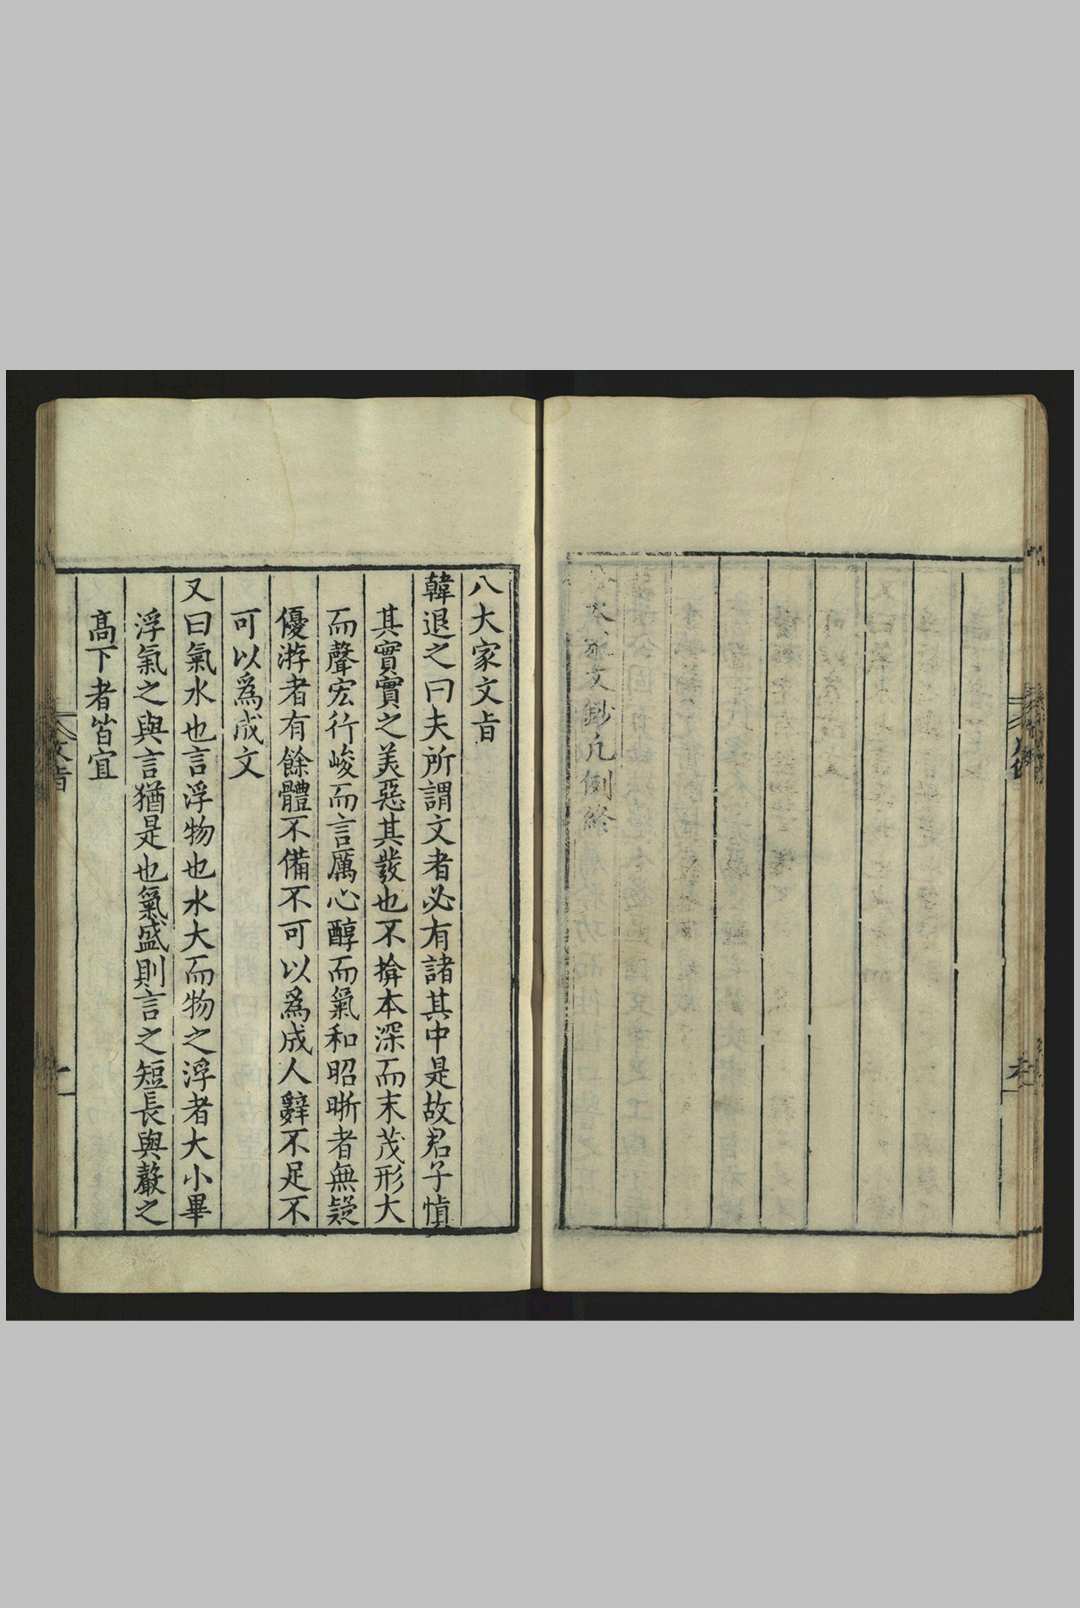 八大家文鈔凡例終
八大家文旨
韓退之曰夫所謂文者必有諸其中是故君子慎
其實實之美惡其發也不揜本深而末茂形大
而聲宏行峻而言厲心醇而氣和昭晰者無疑
優游者有餘體不備不可以爲成人辭不足不
可以爲成文
又曰氣水也言浮物也水大而物之浮者大小畢
浮氣之與言猶是也氣盛則言之短長與聲之
高下者皆宜
文旨